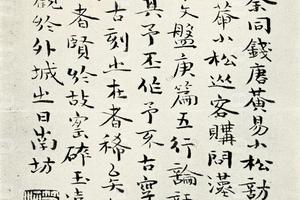 余同錢唐黃易小松訪
莽小松巡客購問漢
文盤庚篇五行論語
其予丕作予亥古
者賢於故窑碎玉
古刻止在者稀矣
觀於外城之日南坊